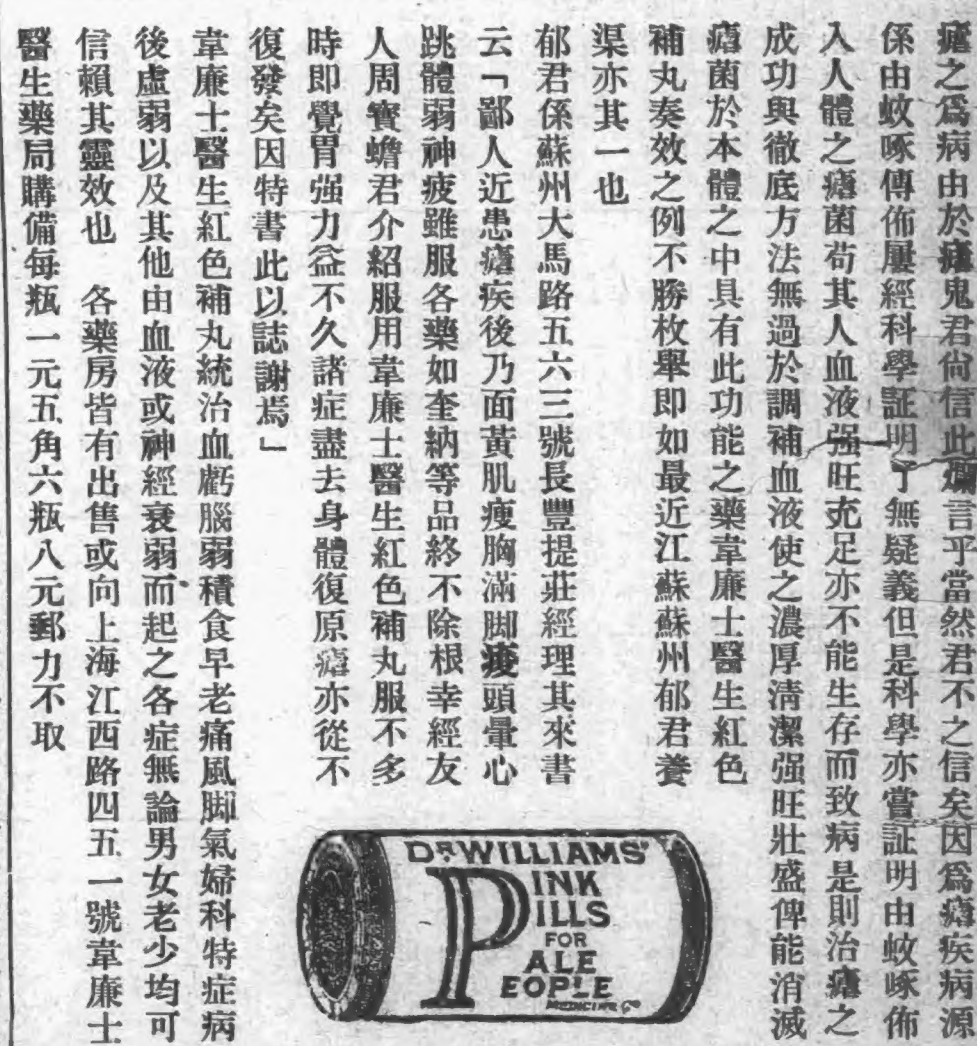 瘧之爲病由於瘧鬼君尙信此讕言乎當然君不之信矣因爲瘧疾病源
係由蚊啄傳佈屢經科學証明了無疑義但是科學亦嘗証明由蚊啄佈
入人體之瘧菌苟其人血液强旺充足亦不能生存而致病是則治瘧之
成功與徹底方法無過於調補血液使之濃厚清潔强旺壯盛俾能消滅
瘧菌於本體之中具有此功能之藥韋廉士醫生紅色
補丸奏效之例不勝枚舉即如最近江蘇蘇州郁君養
渠亦其一也
郁君係蘇州大馬路五六三號長豐提莊經理其來書
云「鄙人近患瘧疾後乃面黃肌瘦胸滿脚痠頭暈心
跳體弱神疲雖服各藥如奎納等品終不除根幸經友
人周寶蟾君介紹服用韋廉士醫生紅色補丸服不多
時即覺胃强力益不久諸症盡去身體復原瘧亦從不
復發矣因特書此以誌謝焉」
韋廉士醫生紅色補丸統治血虧腦弱積食早老痛風脚氣婦科特症病
後虛弱以及其他由血液或神經衰弱而起之各症無論男女老少均可
信賴其靈效也　各藥房皆有出售或向上海江西路四五一號韋廉士
醫生藥局購備每瓶一元五角六瓶八元郵力不取
DR WILLIAMS'
PINK
PILLS
FOR
PALE
PEOPLE
MEDICINE Co